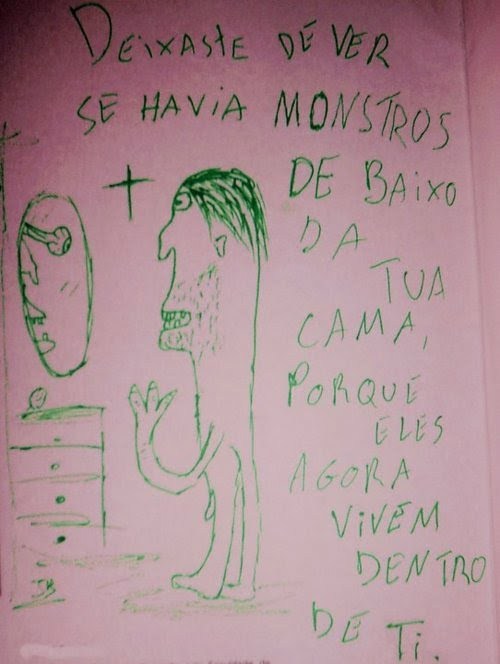 DEIXASTE DE VER
SE HAVIA MONSTROS
DE BAIXO
DA
TUA
CAMA,
PORQUE
ELES
AGORA
VIVEM
DENTRO
DE TI.